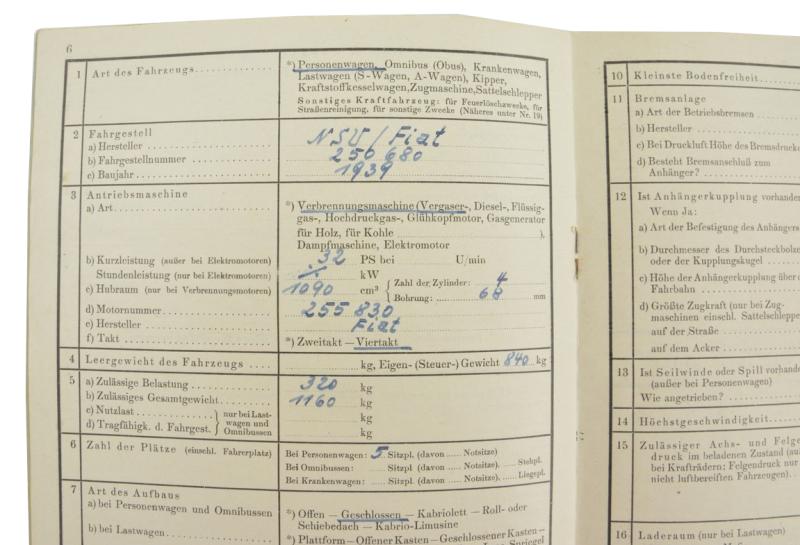 6
1 Art des Fahrzeugs
*) Personenwagen, Omnibus (Obus), Krankenwagen,
Lastwagen (S-Wagen, A-Wagen), Kipper,
Kraftstoffkesselwagen, Zugmaschine, Sattelschlepper
Sonstiges Kraftfahrzeug: für Feuerlöschzwecke, für
Straßenreinigung, für sonstige Zwecke (Näheres unter Nr. 19)
2 Fahrgestell
a) Hersteller NSU/Fiat
b) Fahrgestellnummer 250 680
c) Baujahr 1939
3 Antriebsmaschine
a) Art *) Verbrennungsmaschine (Vergaser-, Diesel-, Flüssig-
gas-, Hochdruckgas-, Glühkopfmotor, Gasgenerator
für Holz, für Kohle ),
Dampfmaschine, Elektromotor
b) Kurzleistung (außer bei Elektromotoren) 32 PS bei U/min
Stundenleistung (nur bei Elektromotoren) kW
c) Hubraum (nur bei Verbrennungsmotoren) 1090 cm³ { Zahl der Zylinder: 4
Bohrung: 68 mm
d) Motornummer 255 830
e) Hersteller Fiat
f) Takt *) Zweitakt – Viertakt
4 Leergewicht des Fahrzeugs kg, Eigen- (Steuer-) Gewicht 840 kg
5 a) Zulässige Belastung 320 kg
b) Zulässiges Gesamtgewicht 1160 kg
c) Nutzlast } nur bei Last- kg
d) Tragfähigk. d. Fahrgest. wagen und Omnibussen kg
6 Zahl der Plätze (einschl. Fahrerplatz)
Bei Personenwagen: 5 Sitzpl. (davon Notsitze)
Bei Omnibussen: Sitzpl. (davon Notsitze), Stehpl.
Bei Krankenwagen: Sitzpl. (davon Notsitze), Liegepl.
7 Art des Aufbaus
a) bei Personenwagen und Omnibussen
*) Offen – Geschlossen – Kabriolett – Roll- oder
Schiebedach – Kabrio-Limusine
b) bei Lastwagen
*) Plattform – Offener Kasten – Geschlossener Kasten –
10 Kleinste Bodenfreiheit
11 Bremsanlage
a) Art der Betriebsbremsen
b) Hersteller
c) Bei Druckluft Höhe des Bremsdrucke
d) Besteht Bremsanschluß zum
Anhänger?
12 Ist Anhängerkupplung vorhande
Wenn Ja:
a) Art der Befestigung des Anhängers
b) Durchmesser des Durchsteckbolze
oder der Kupplungskugel
c) Höhe der Anhängerkupplung über
Fahrbahn
d) Größte Zugkraft (nur bei Zug-
maschinen einschl. Sattelschleppe
auf der Straße
auf dem Acker
13 Ist Seilwinde oder Spill vorhande
(außer bei Personenwagen)
Wie angetrieben?
14 Höchstgeschwindigkeit
15 Zulässiger Achs- und Felge
druck im beladenen Zustand (au
bei Krafträdern: Felgendruck nur
nicht luftbereiften Fahrzeugen)
16 Laderaum (nur bei Lastwagen)